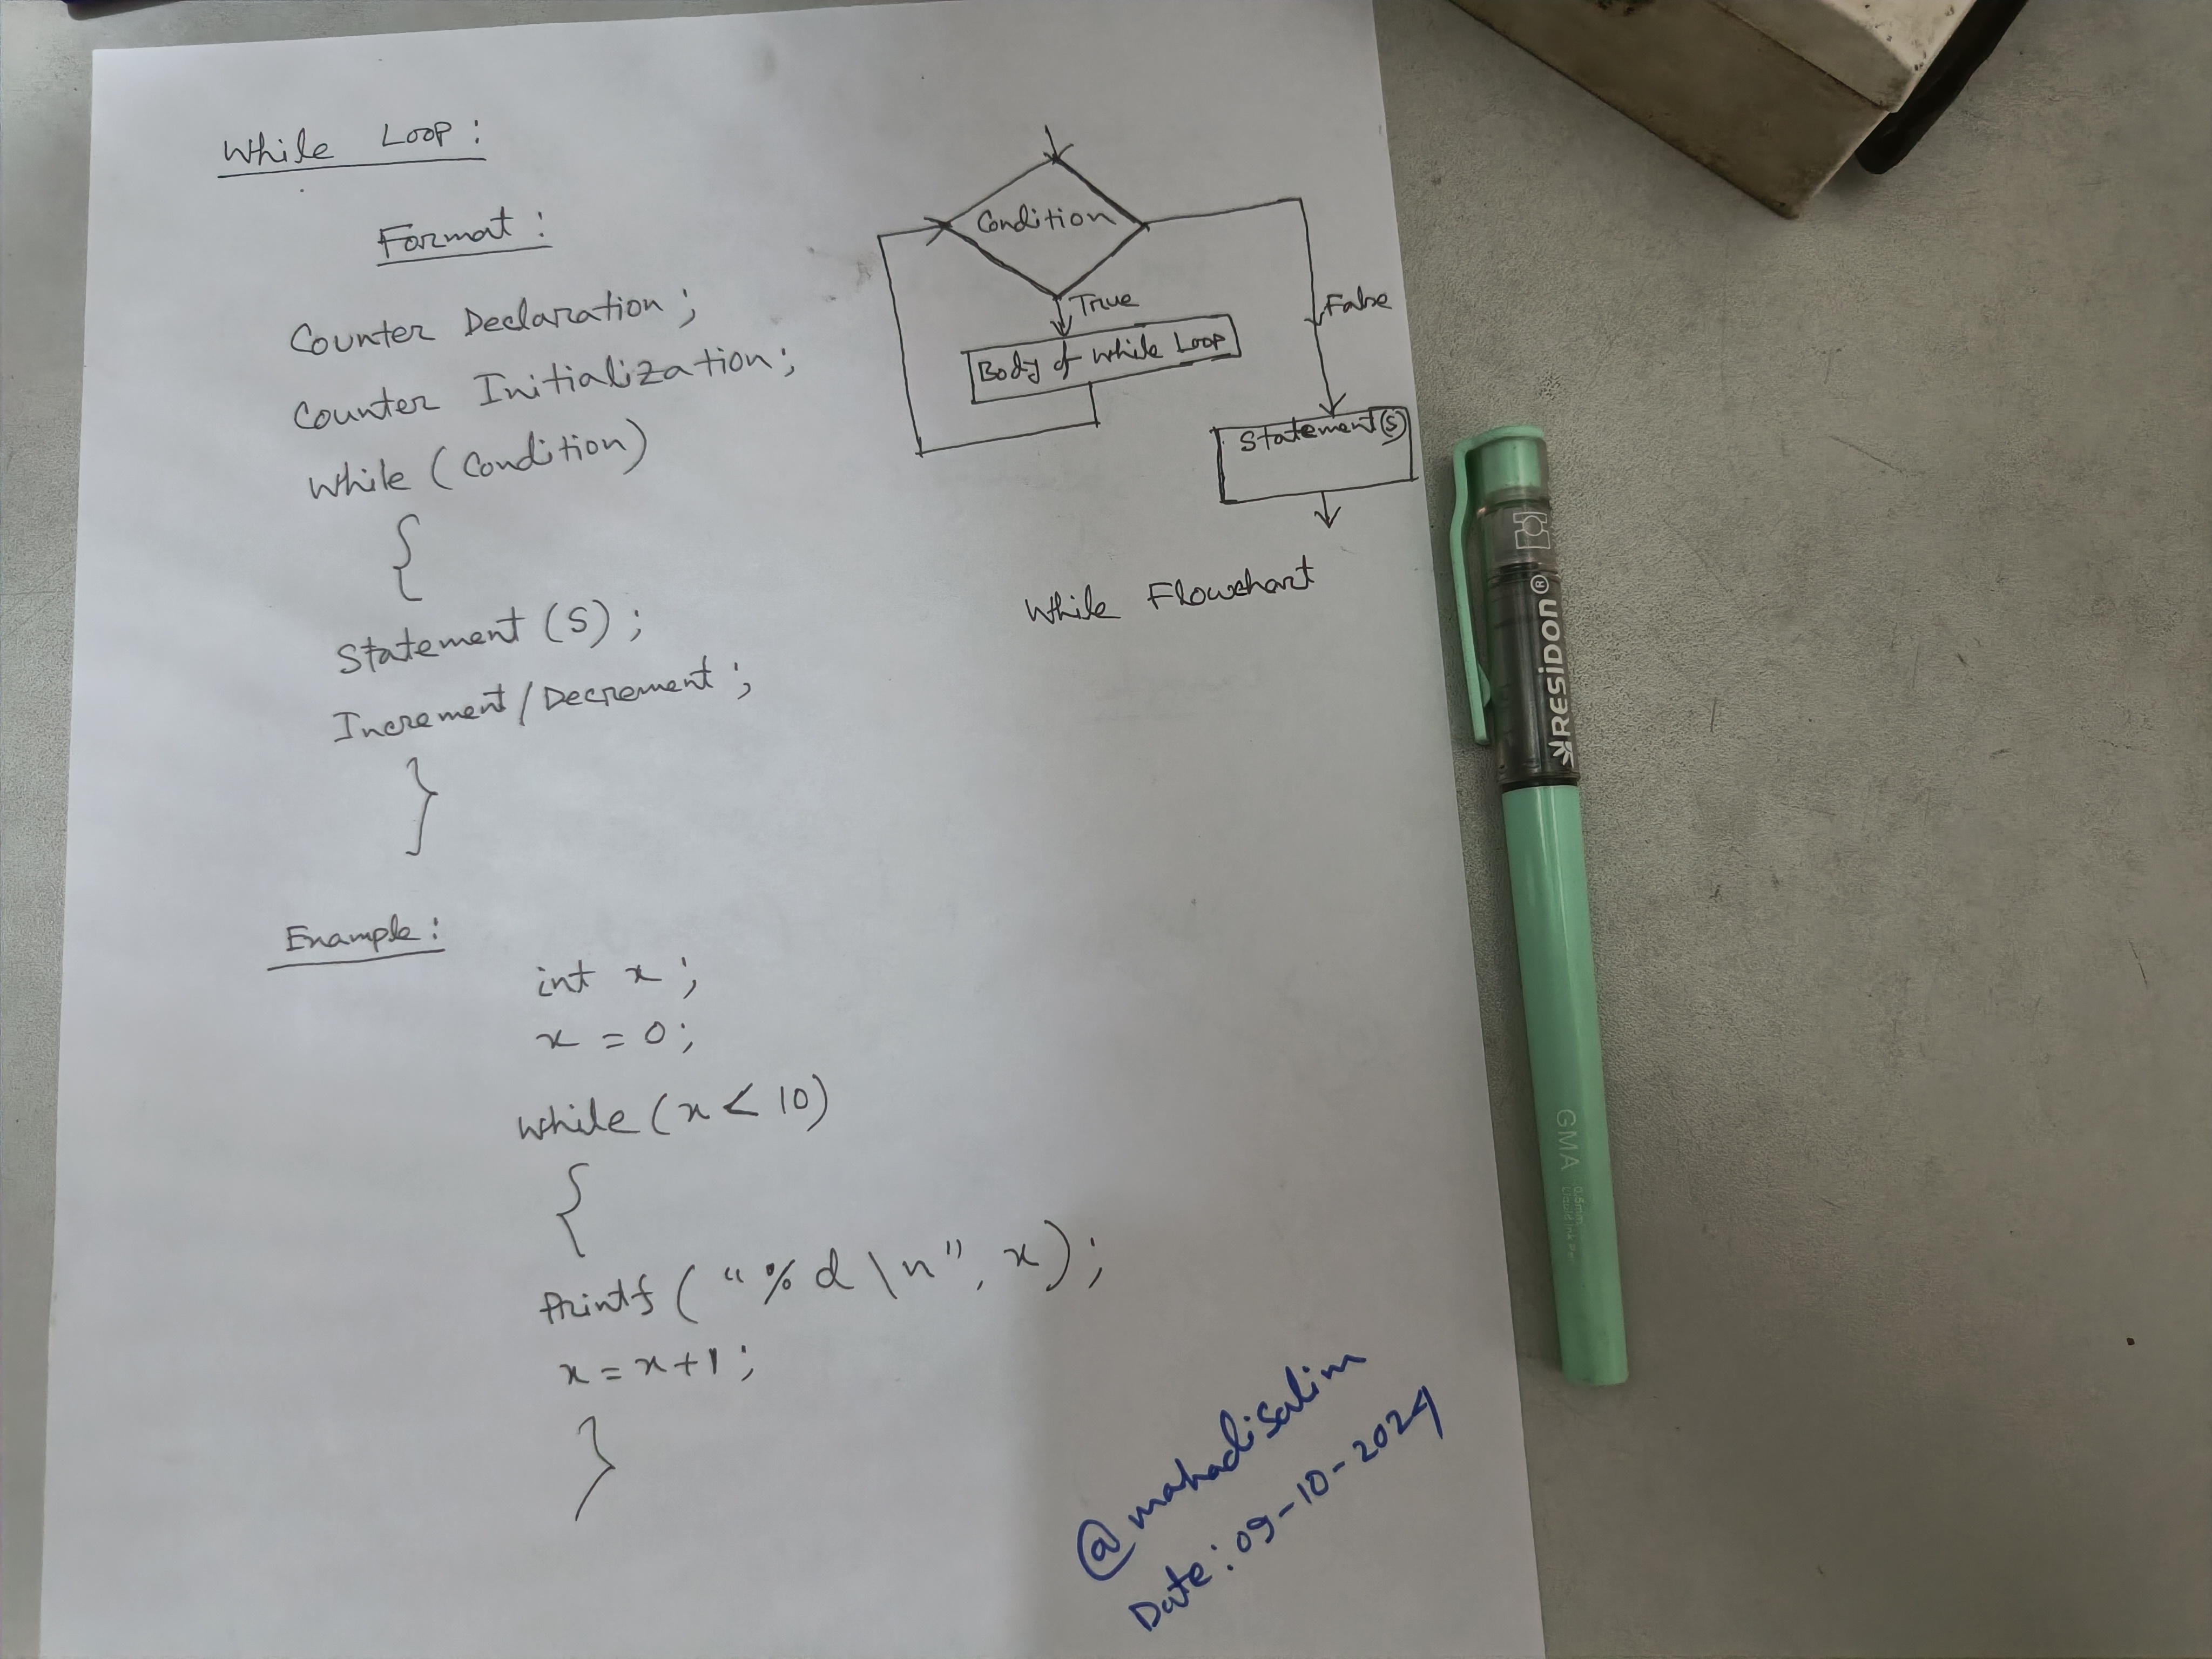 While Loop:
Format:
Counter Declaration;
Counter Initialization;
While (Condition)
{
Statement (S);
Increment/Decrement;
}
Condition
True
False
Body of While Loop
Statement(S)
While Flowchart
Example:
int x;
x = 0;
While (x < 10)
{
Printf ("%d \n", x);
x = x+1;
}
@mahadisalim
Date: 09-10-2024
RESiDON®
GMA 0.5mm
Liquid Ink Pen